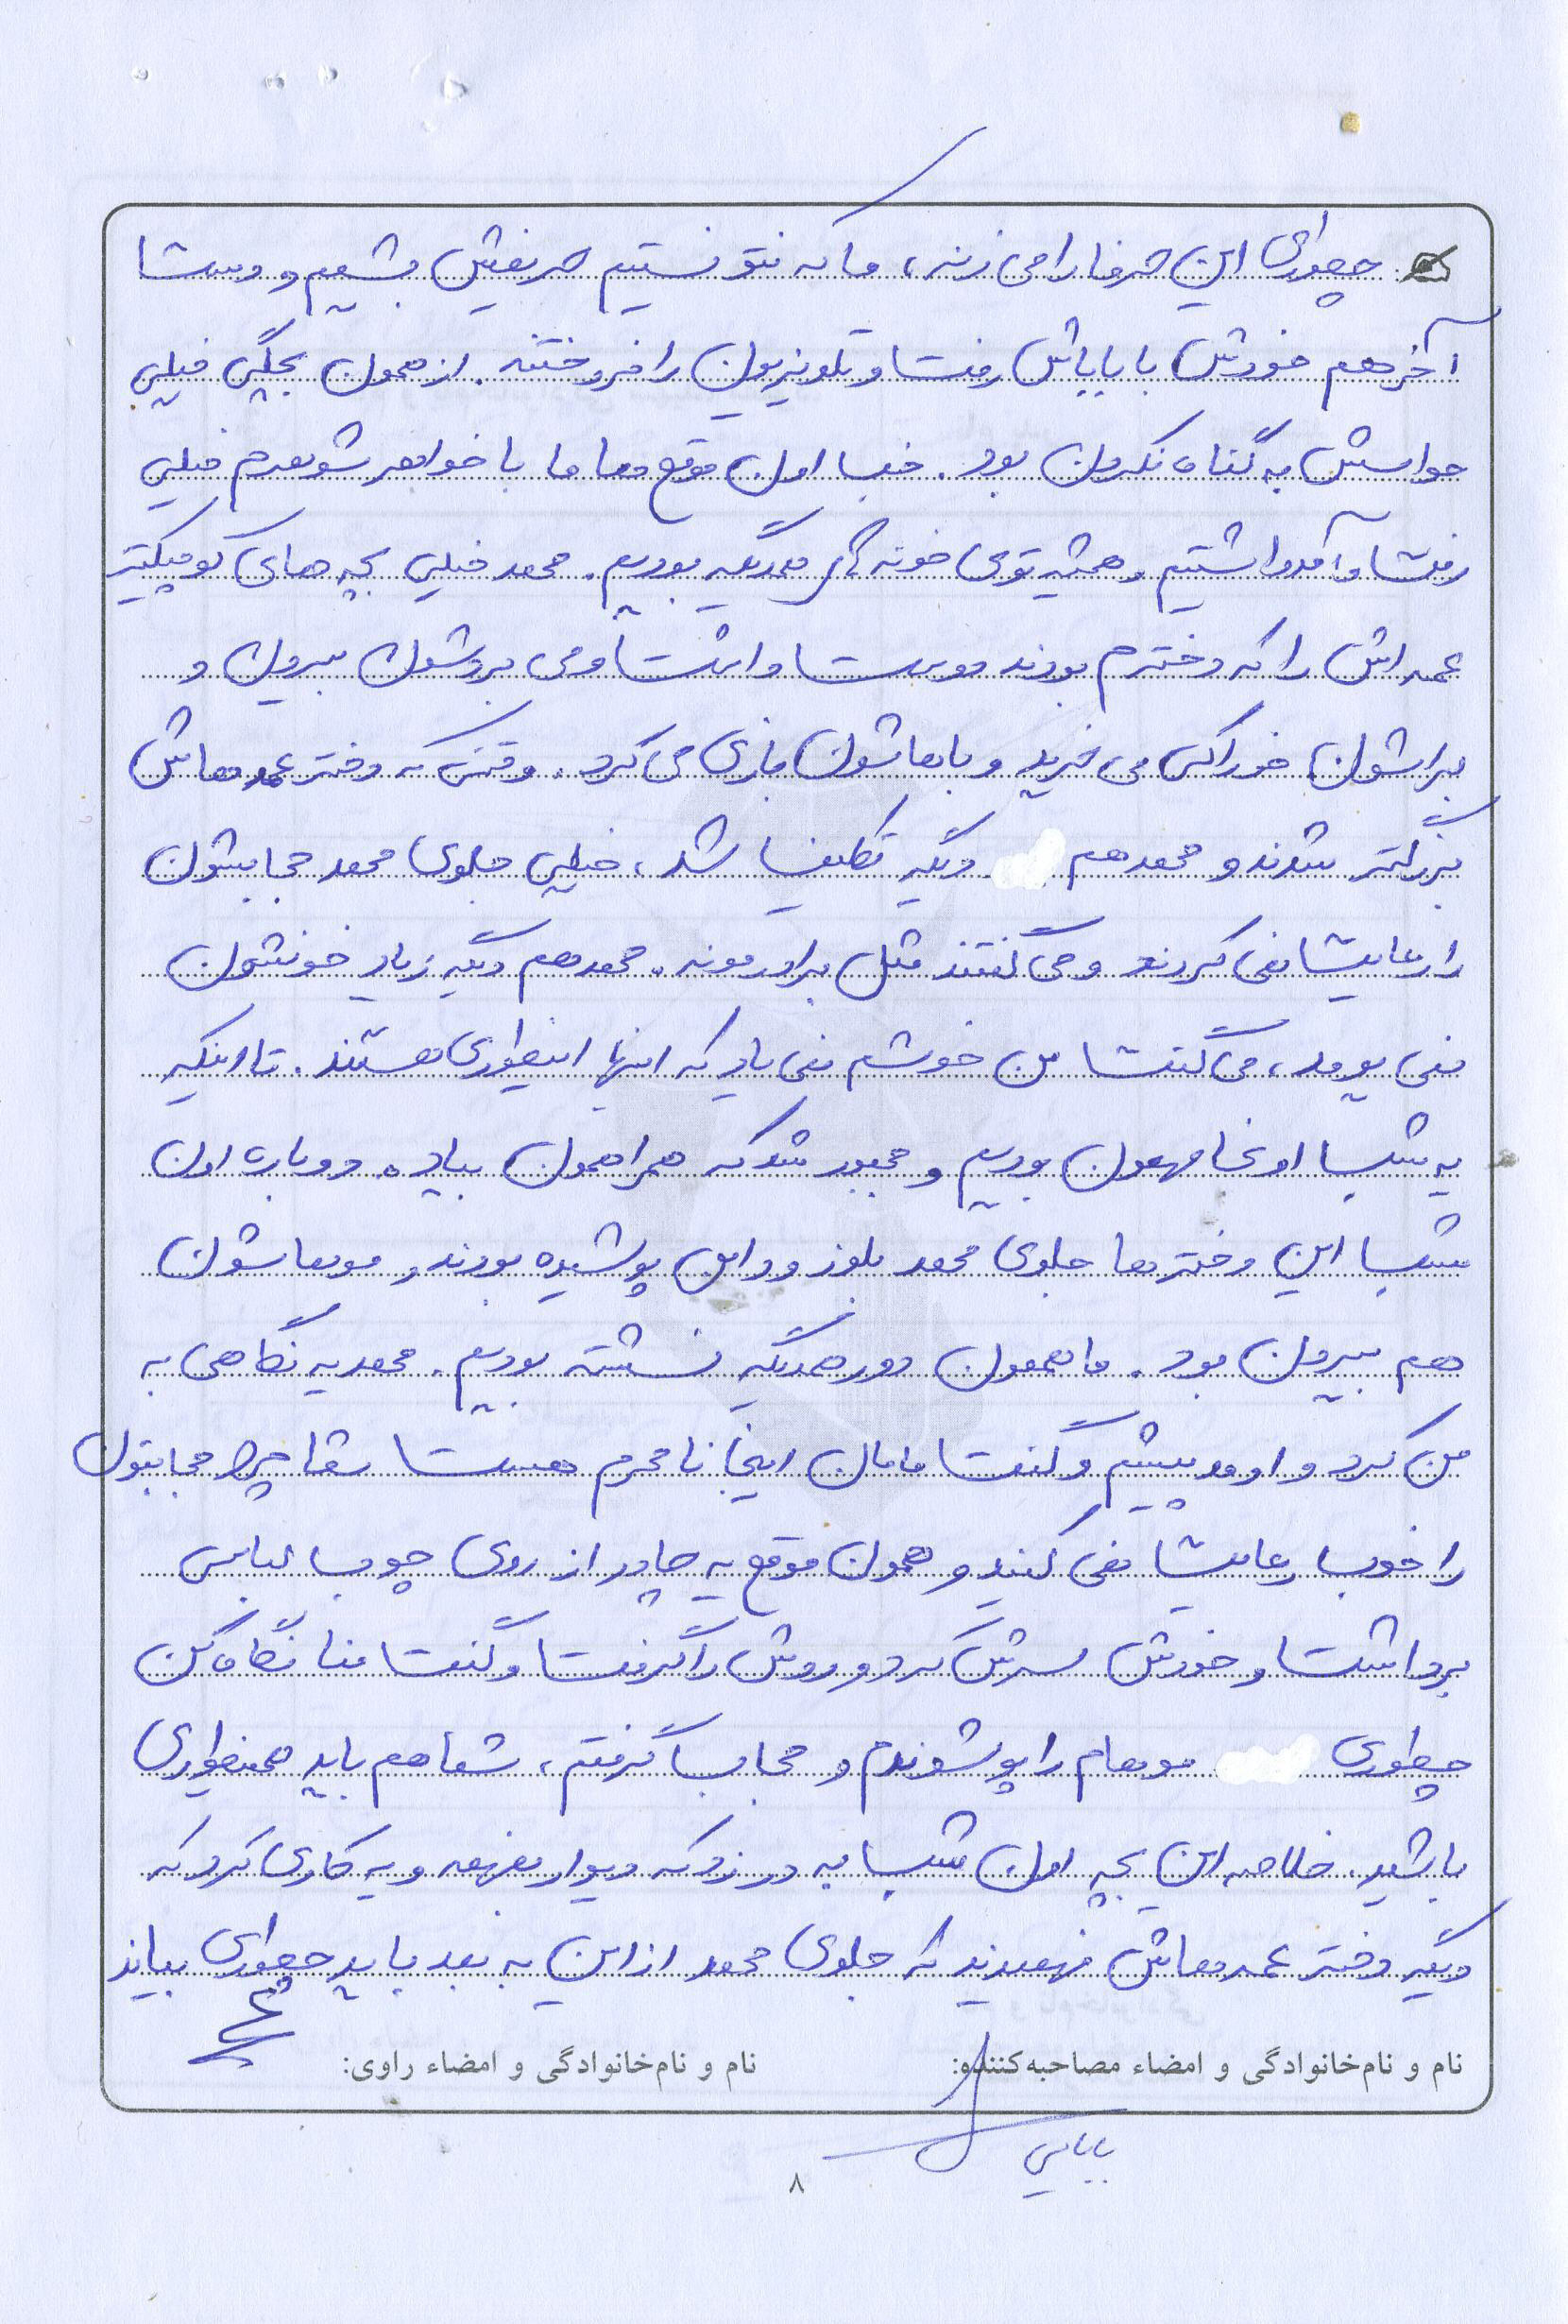 چطوری این حرفا را می زنه، ما که نتونستیم حریفش بشیم و دست
آخر هم خودش با باباش رفت و تلویزیون را فروختند. از همون بچگی خیلی
حواسش به گناه نکردن بود. خب اون موقع ها ما با خواهر شوهرم خیلی
رفت و آمد داشتیم و همیشه توی خونه های همدیگه بودیم. محمد خیلی بچه های کوچیکتر
عمه اش را که دخترم بودند دوست داشت و می بردشون بیرون و
براشون خوراکی می خرید و باهاشون بازی می کرد. وقتی که دختر عمه هاش
بزرگتر شدند و محمد هم دیگه تکلیف شد، خیلی جلوی محمد حجابشون
را رعایت نمی کردند و می گفتند مثل برادرمونه. محمد هم دیگه زیاد خونشون
نمی یومد، می گفت من خوشم نمی یاد که اینها اینطوری هستند. تا اینکه
یه شب اونجا مهمون بودیم و مجبور شد که همراهمون بیاد. دوباره اون
شب این دخترها جلوی محمد بلوز و دامن پوشیده بودند و موهاشون
هم بیرون بود. ما همون دور همدیگه نشسته بودیم. محمد یه نگاهی به
من کرد و اومد پیشم و گفت مامان اینجا نامحرم هست شما چرا حجابتون
را خوب رعایت نمی کنید و همون موقع یه چادر از روی چوب لباسی
برداشت و خودش سرش کرد و روش را گرفت و گفت منا نگاه کن
چطوری موهام را پوشوندم و حجاب گرفتم، شما هم باید همینطوری
باشید. خلاصه این بچه اون شب به در زد که دیوار بفهمه و یه کاری کرد که
دیگه دختر عمه هاش فهمیدند که جلوی محمد از این به بعد باید چطوری بیاند
نام و نام‌خانوادگی و امضاء مصاحبه‌کننده:
نام و نام‌خانوادگی و امضاء راوی:
بابایی
۸